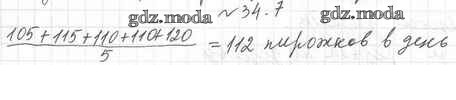 gdz.moda №34.7 gdz.moda
105+115+110+110+120
5
= 112 пирожков в день